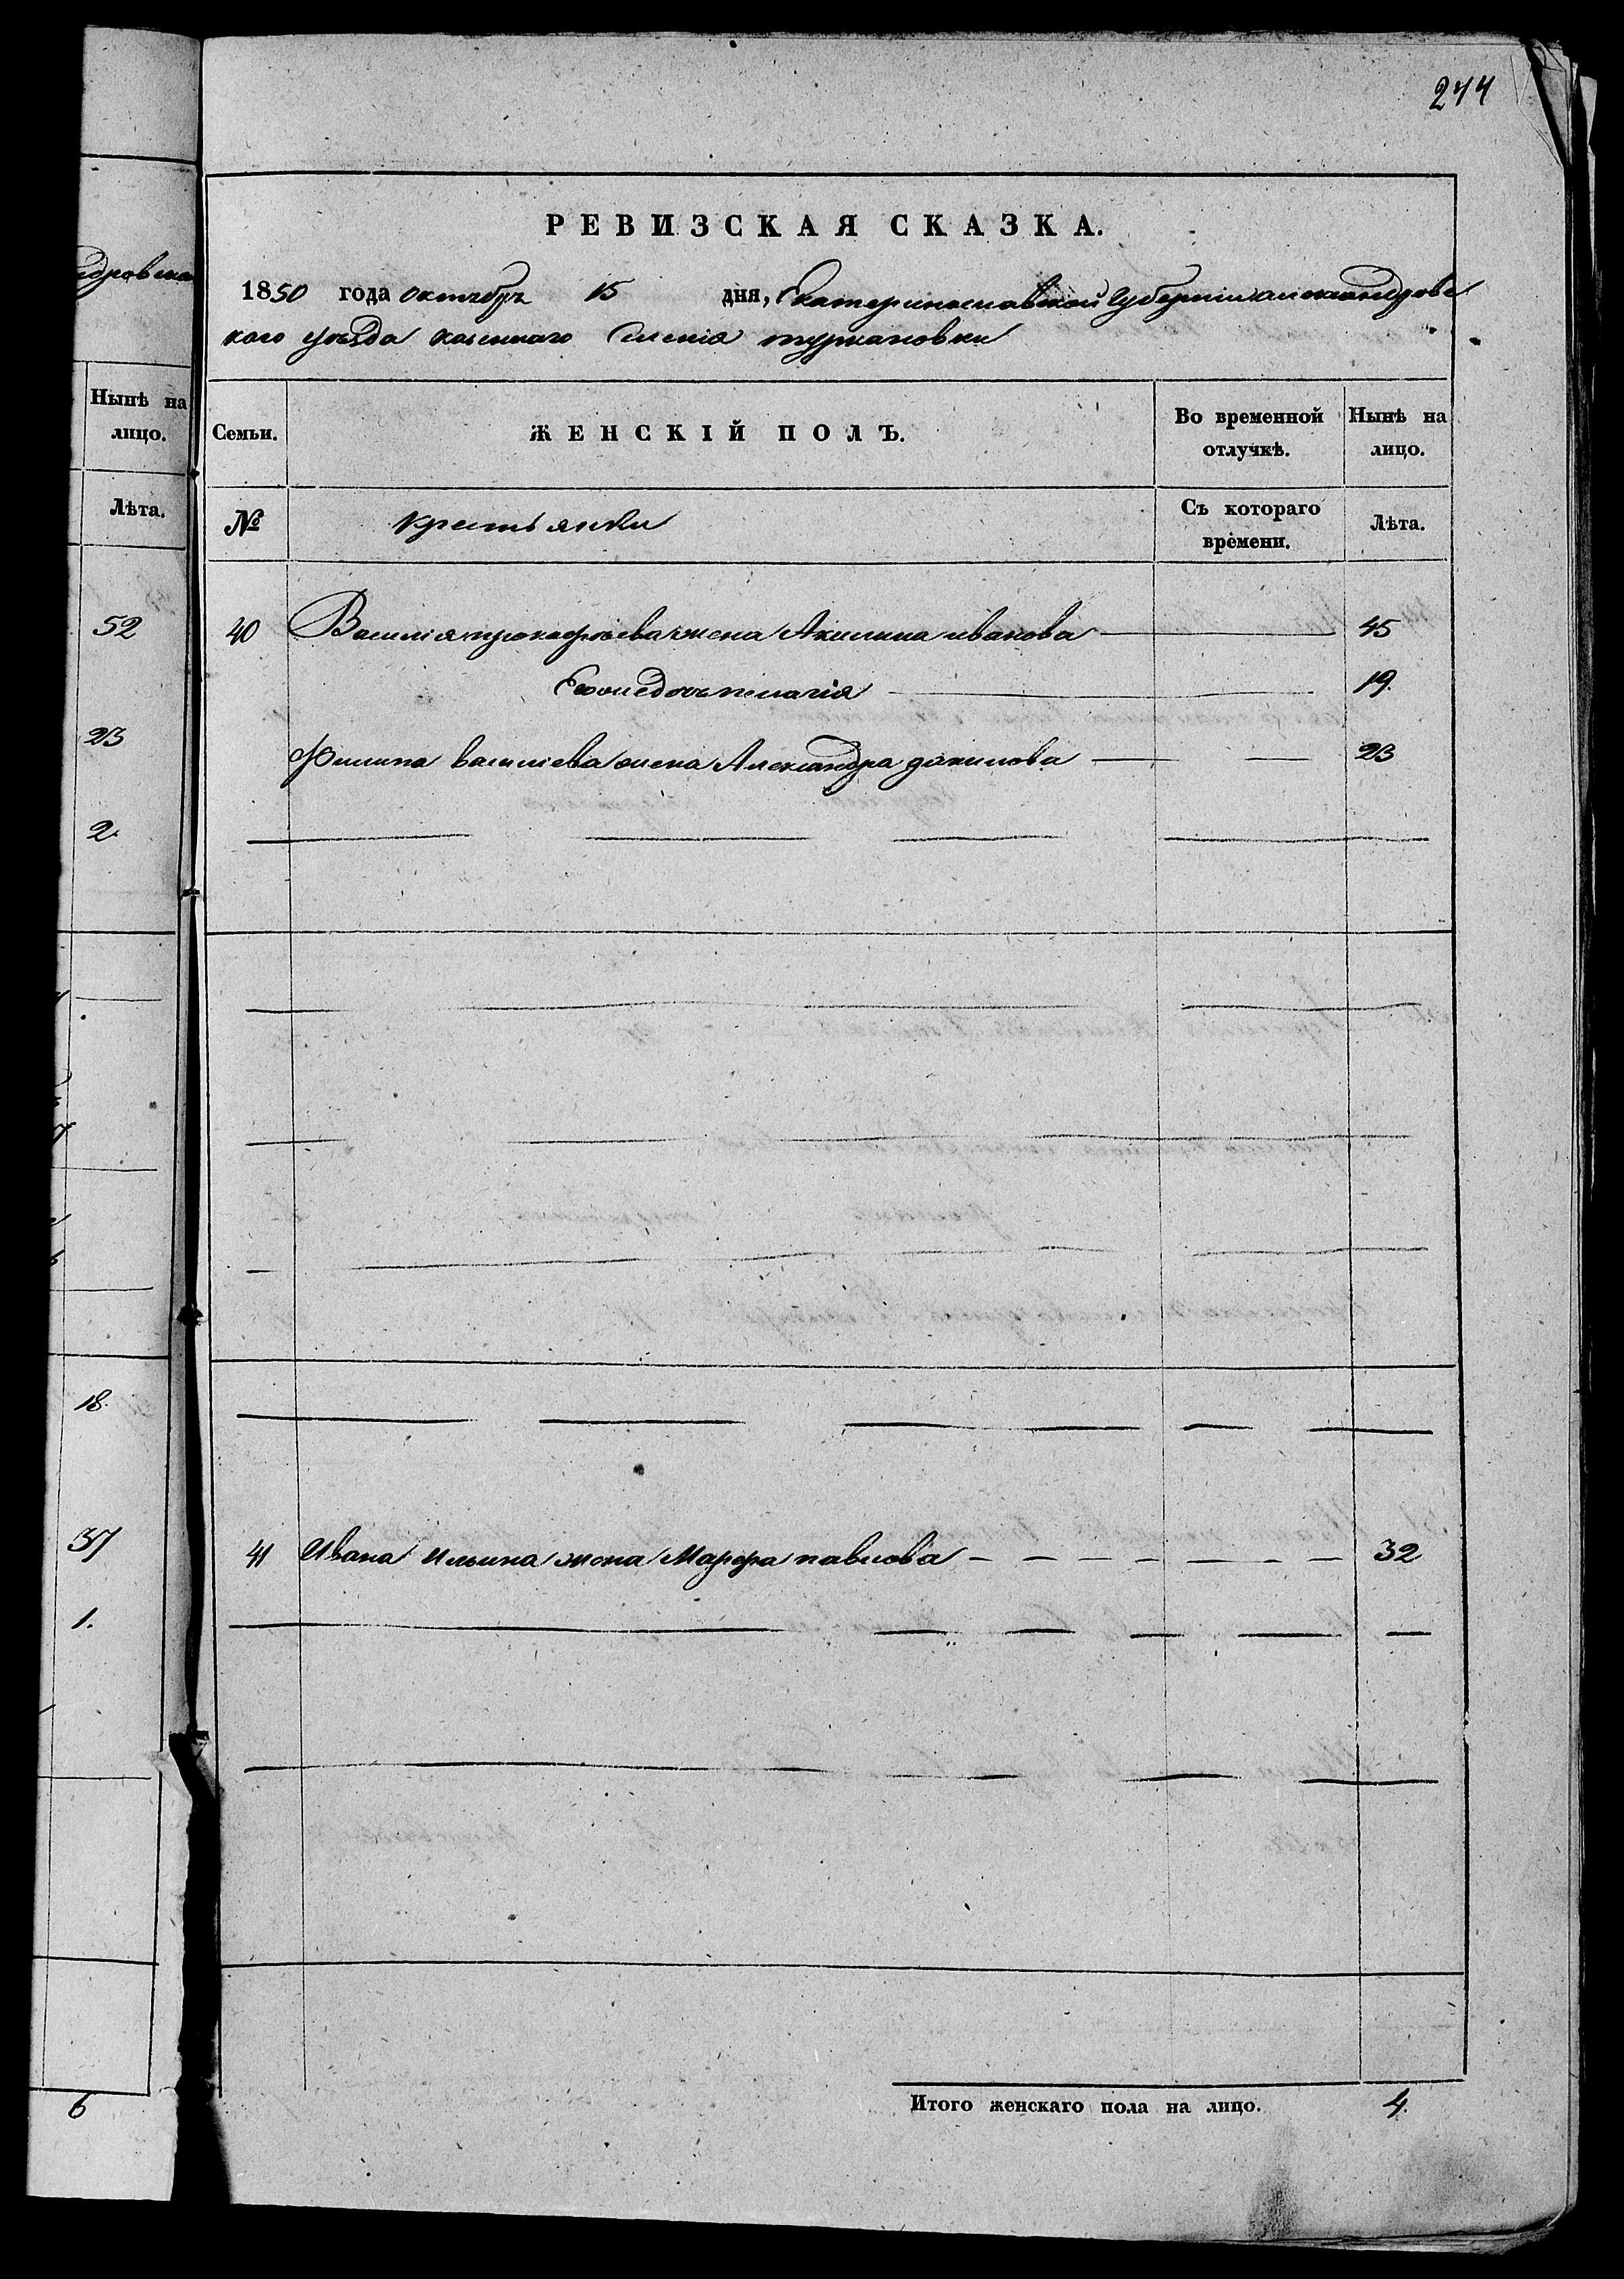 244
РЕВИЗСКАЯ СКАЗКА.
1850 года октября 15 дня, Екатеринославской Губерніи александровс
каго уезда казеннаго Селенія туркановки
Нынѣ на
лицо.
Лѣта.
Семьи.
ЖЕНСКІЙ ПОЛЪ.
Во временной
отлучкѣ.
Нынѣ на
лицо.
№
крестьянки
Съ котораго
времени.
Лѣта.
52
40 Василія прокофьева жена Акилина иванова 45
Его дочь пелагія 19.
23
Филипа васильева жена Александра данилова 23
2
18.
37
41 Ивана Ильина жена Марфа павлова 32
1.
6
Итого женскаго пола на лицо. 4.